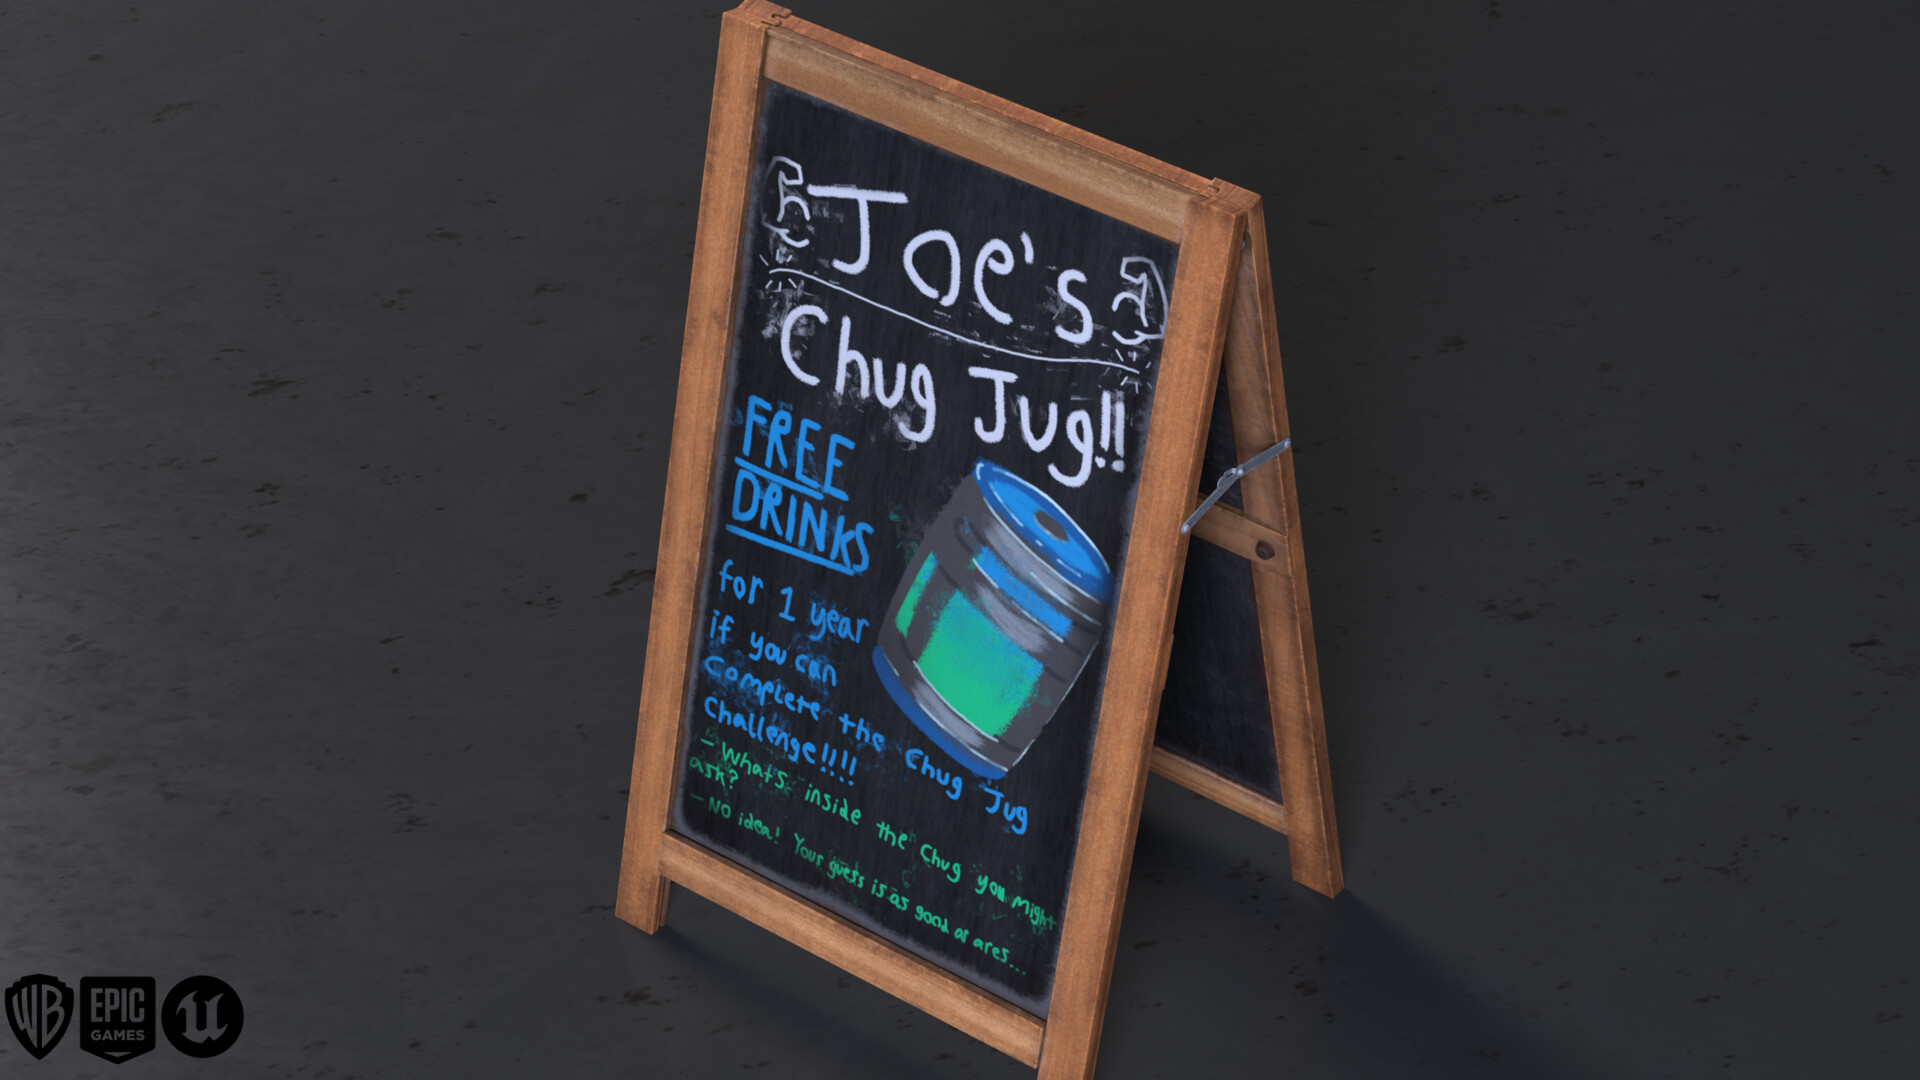 Joe's
Chug Jug!!
FREE
DRINKS
for 1 year
if you can
Complete the Chug Jug
Challenge!!!!
- What's inside the Chug you might
ask?
- No idea! Your guess is as good as ares...
WB
EPIC
GAMES